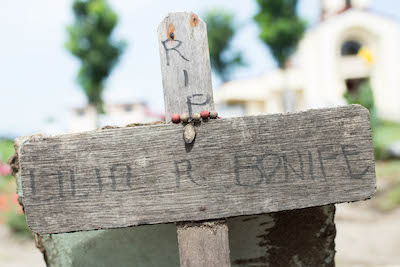 RIP
LILIA R BONIFE